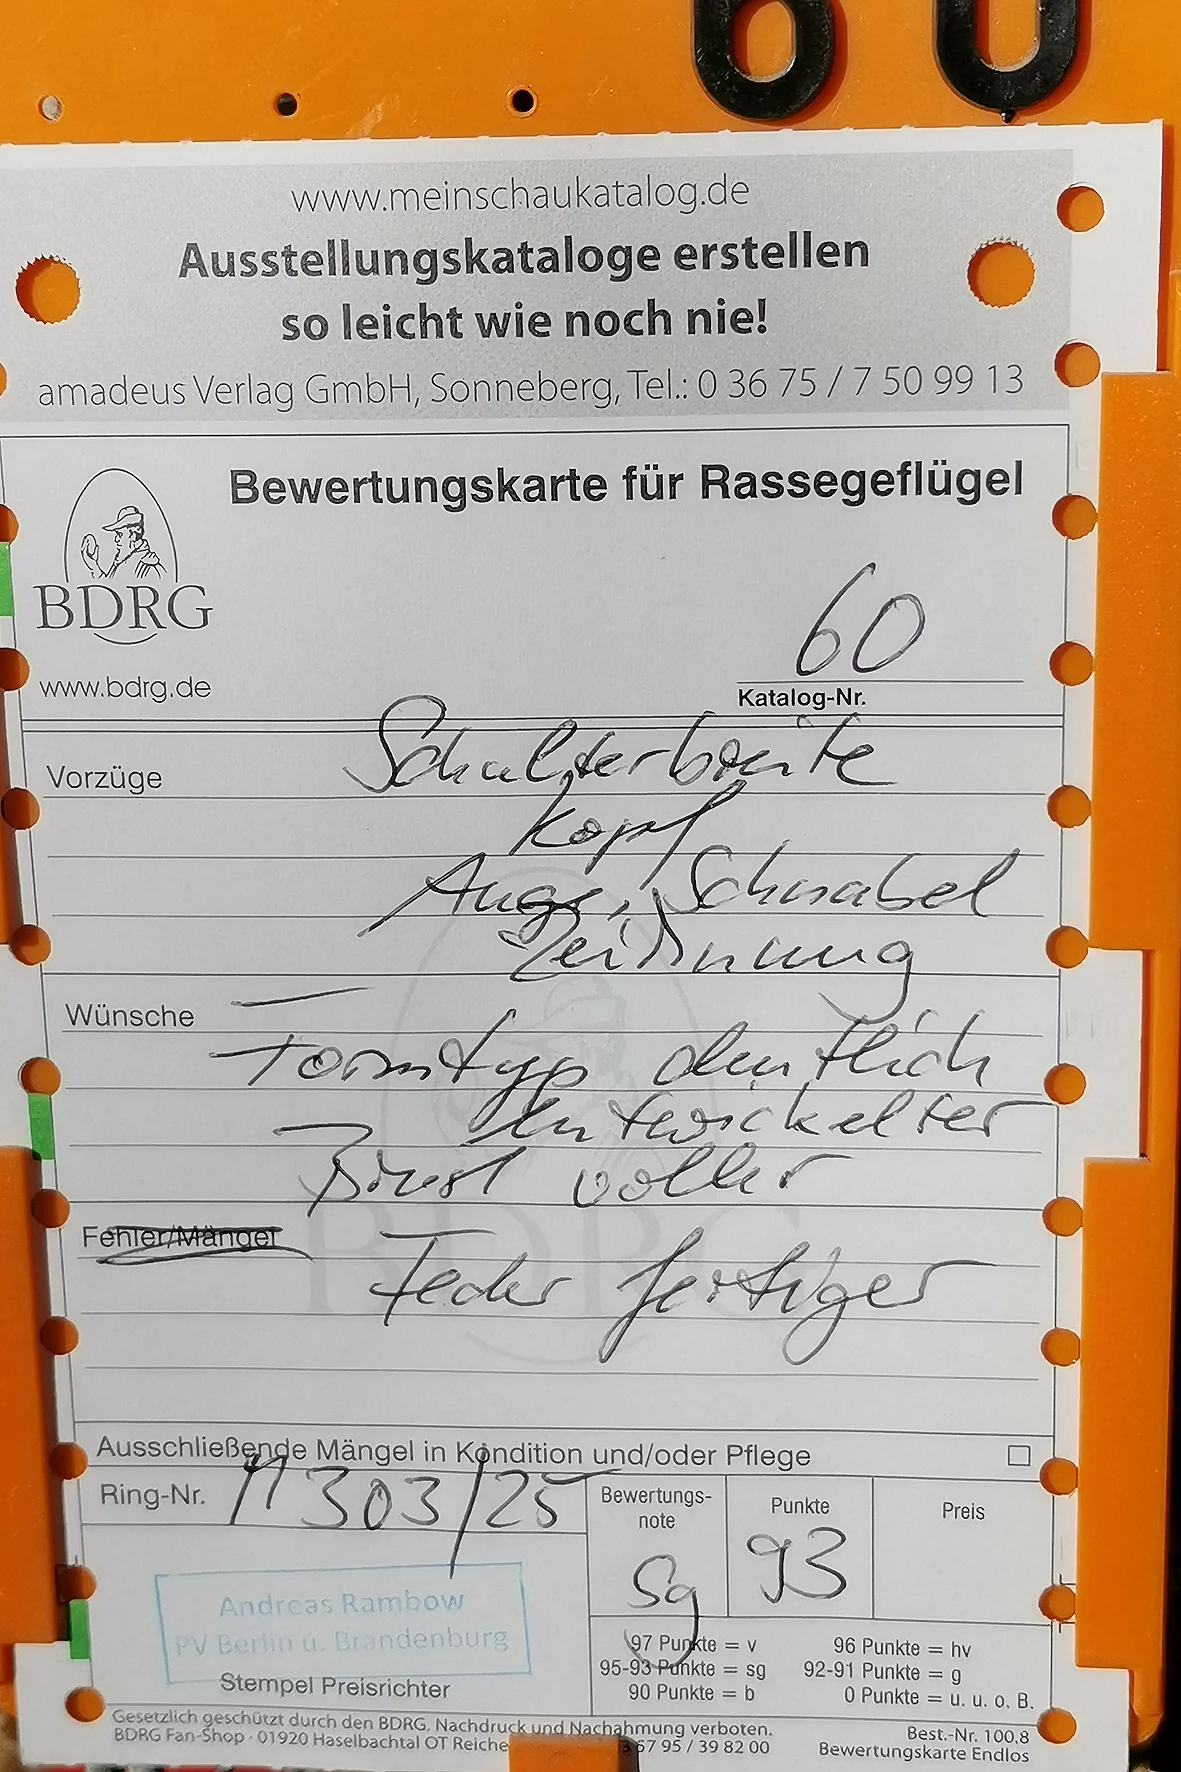 60
www.meinschaukatalog.de
Ausstellungskataloge erstellen
so leicht wie noch nie!
amadeus Verlag GmbH, Sonneberg, Tel.: 0 36 75 / 7 50 99 13
Bewertungskarte für Rassegeflügel
BDRG
www.bdrg.de
60
Katalog-Nr.
Vorzüge
Schulterbreite
Kopf
Auge, Schnabel
Zeichnung
Wünsche
Formtyp deutlich
entwickelter
Brust voller
Fehler/Mängel
Feder fertiger
Ausschließende Mängel in Kondition und/oder Pflege
Ring-Nr. 303/25
Bewertungs-
note
sg
Punkte
93
Preis
Andreas Rambow
PV Berlin u. Brandenburg
Stempel Preisrichter
97 Punkte = v 96 Punkte = hv
95-93 Punkte = sg 92-91 Punkte = g
90 Punkte = b 0 Punkte = u. u. o. B.
Gesetzlich geschützt durch den BDRG. Nachdruck und Nachahmung verboten. Best.-Nr. 100.8
BDRG Fan-Shop · 01920 Haselbachtal OT Reiche 57 95 / 39 82 00 Bewertungskarte Endlos